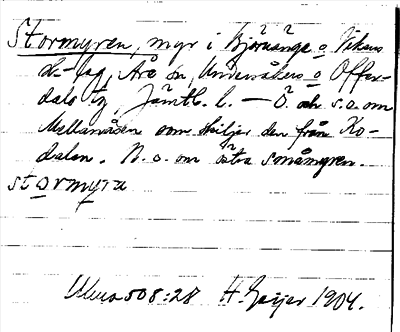 Stormyren, myr i Björnänge o Vikens
sk-lag, Åre sn, Undersåkers o Offer-
dals tg, Jämtl. l. — Ö och s.o. om
Mellanåsen som skiljer den från Ko-
dalen. N. o. om östra småmyren.
stormyra
508:28 H. Geijer 1904.